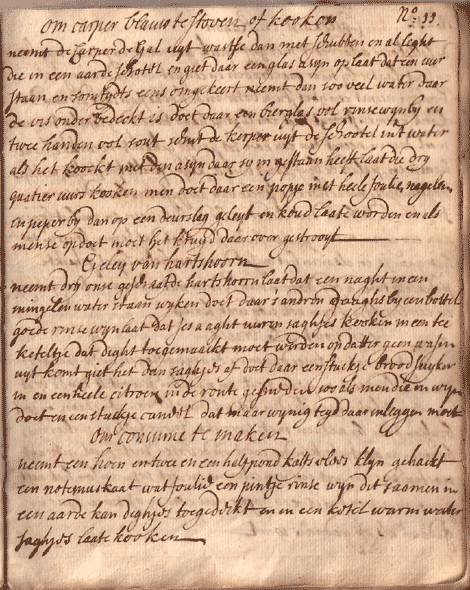 om carper blauw te stoven of kooken
No: 33
neemt de carper de gal uyt wastse dan met schubben en al leght
die in een aarde schottel en giet daer een glas asyn op laat dat een uur
staan en somtydts eens omgekeert neemt dan soo veel water daer
de vis onder bedeckt is doet daar een bierglas vol rinse wyn by en
twee handen vol sout schut de kerper uyt de schootel int water
als het koockt met den asyn daer sy in gestaen heeft laat die dry
quatier uurs kooken men doet daar een popje met heele foulie, nagelen
en peper by dan op een deurslag geleyt en koud laate worden en als
mense opdoet moet het kruud daer over gestrooyt
Geley van hartshoorn
neemt dry onse geraspte hartshoorn laat dat een naght in een
mingelen water staan wyken doet daar s andren daaghs by een bottel
goede rinse wyn laat dat ses a aght uuren saghjes kooken in een tee
keteltje dat dight toegemaackt moet werden op datter geen wasem
uyt komt giet het dan saghjes af doet daar een stuckje brood suyker
in en een heele citroen in de ronte gesneden soo als men die in wyn
doet en een stuckje caneel dat maar wynig teyd daar in leggen moet
om consume te maken
neemt een hoen en twee en een half pond kalfs vlees klyn gehackt
een note muskaat wat foulie een pintje rinse wyn dit saamen in
een aarde kan dightjes toegedeckt en in een ketel warm water
saghjes laate kooken